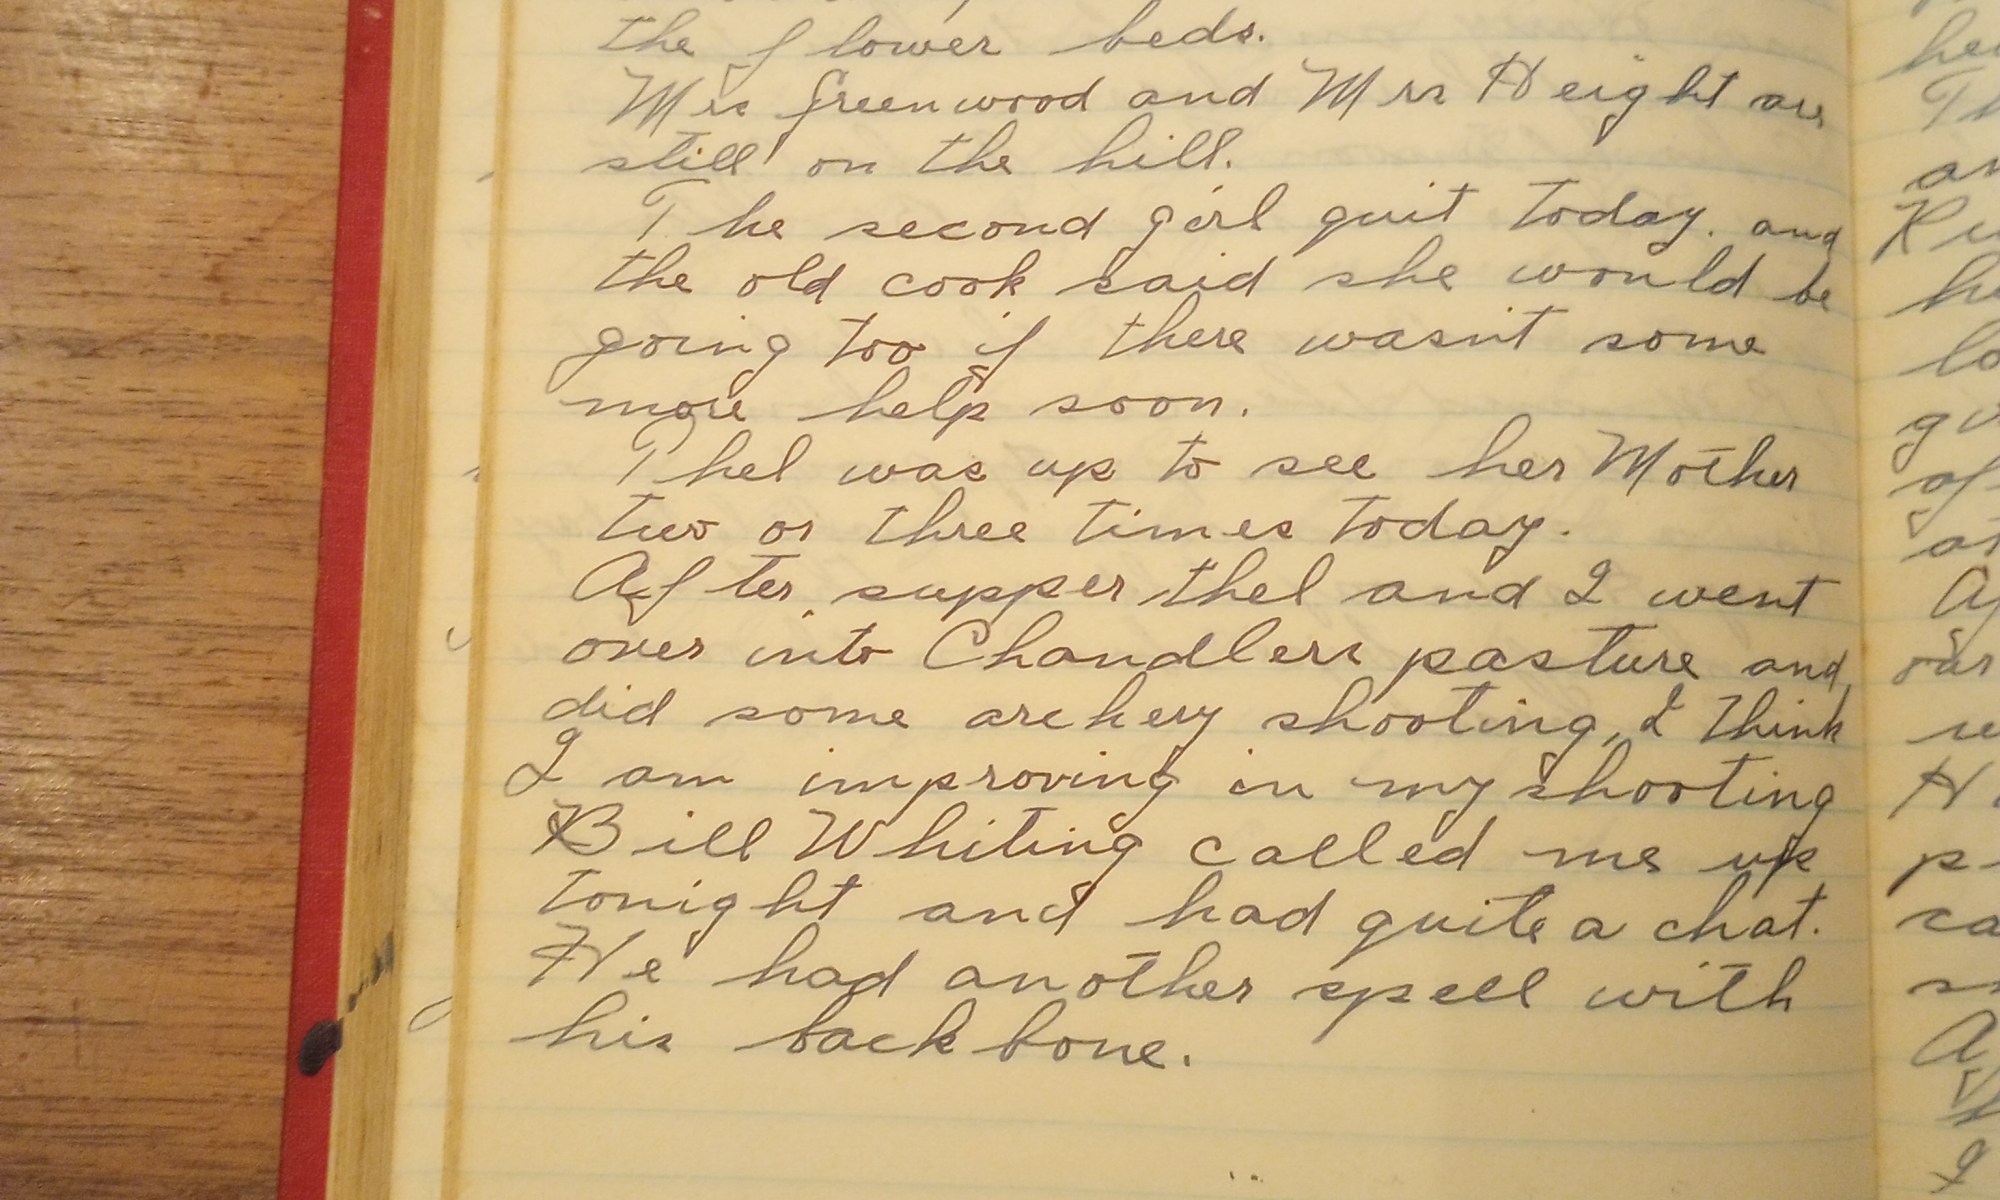 the flower beds.
Mrs Greenwood and Mrs Height are
still on the hill.
The second girl quit today. and
the old cook said she would be
going too if there wasn't some
more help soon.
Thel was up to see her Mother
two or three times today.
After supper thel and I went
over into Chandlers pasture and
did some archery shooting, I think
I am improving in my shooting
Bill Whiting called me up
tonight and had quite a chat.
He had another spell with
his back bone.